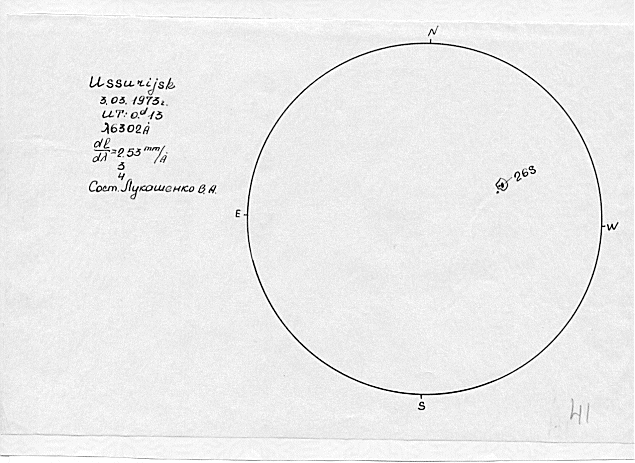 Ussurijsk
3.03.1973г.
UT: 0.ᵈ13
λ6302Å
dl/dλ=2.53 mm/Å
3
4
Сост. Лукашенко В.А.
N
263
E
W
S
41